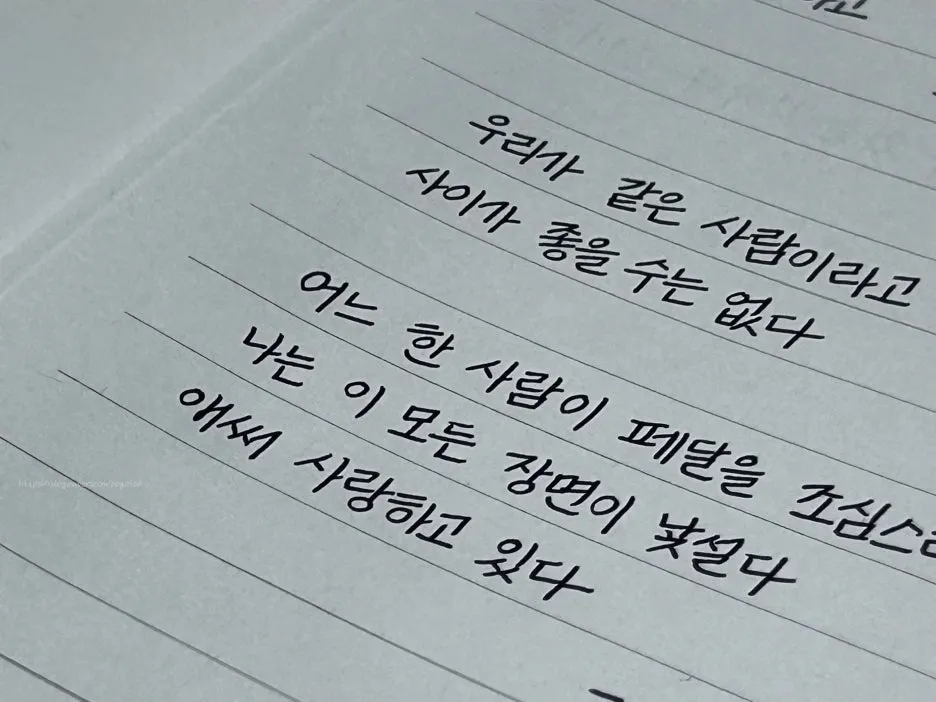 우리가 같은 사람이라고
사이가 좋을 수는 없다
어느 한 사람이 페달을
나는 이 모든 장면이 낯설다
애써 사랑하고 있다